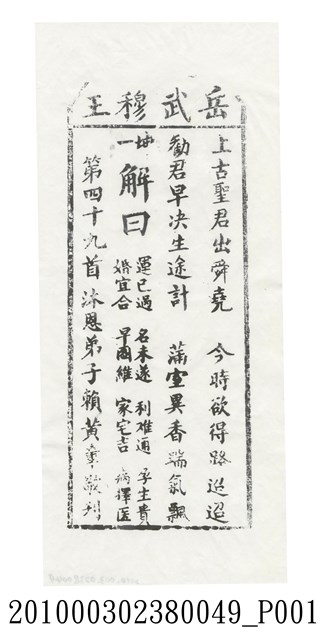 岳武穆王
上古聖君出舜堯　今時欲得路迢迢
勸君早決生途計　滿室異香瑞氣飄
坤一
解曰
運已過　名未遂　利难通　孕生貴
婚宜合　早圖維　家宅吉　病擇医
第四十九首沐恩弟子賴黃 敬刊
201000302380049_P001